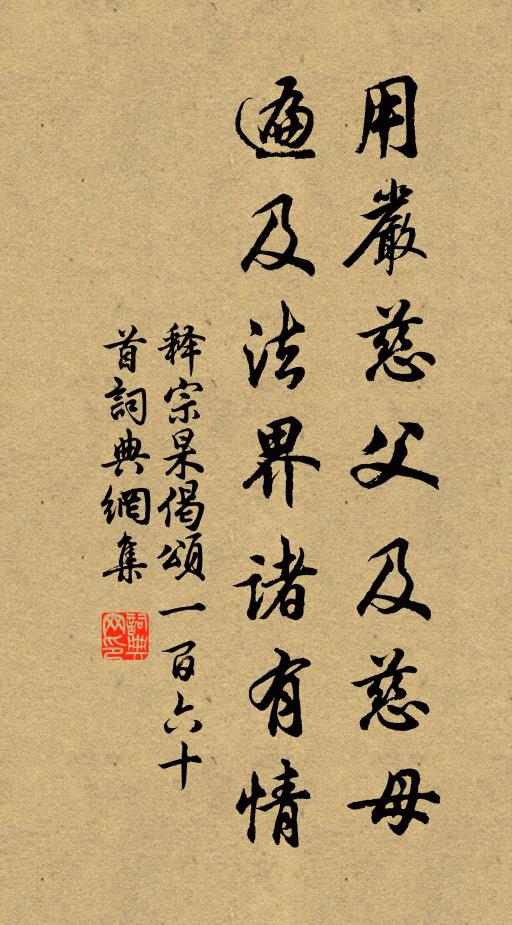 用嚴慈父及慈母
遍及法界諸有情
释宗杲偈頌一百六十
首詞典網集
詞典网印